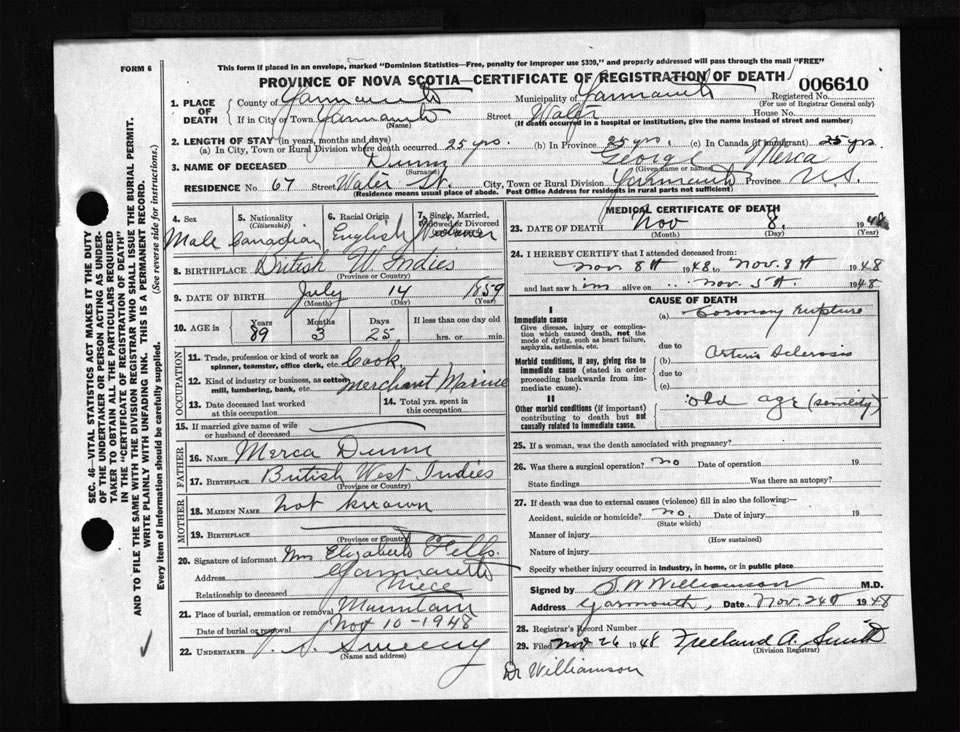 FORM 6
This form if placed in an envelope, marked "Dominion Statistics—Free, penalty for improper use $300," and properly addressed will pass through the mail "FREE"
PROVINCE OF NOVA SCOTIA—CERTIFICATE OF REGISTRATION OF DEATH
006610
1. PLACE OF DEATH
County of Yarmouth Municipality of Yarmouth Registered No.
(For use of Registrar General only)
If in City or Town Yarmouth Street Water House No.
(Name) (If death occurred in a hospital or institution, give the name instead of street and number)
2. LENGTH OF STAY (in years, months and days)
(a) In City, Town or Rural Division where death occurred 25 yrs. (b) In Province 25 yrs. (c) In Canada (if immigrant) 25 yrs
3. NAME OF DECEASED Dunn George Merca
(Surname) (Given name or names)
RESIDENCE No. 67 Street Water St. City, Town or Rural Division Yarmouth Province N.S.
(Residence means usual place of abode. Post Office Address for residents in rural parts not sufficient)
4. Sex
Male
5. Nationality
(Citizenship)
Canadian
6. Racial Origin
English
7. Single, Married, Widowed or Divorced
8. BIRTHPLACE British W. Indies
(Province or Country)
9. DATE OF BIRTH July 14 1859
(Month) (Day) (Year)
10. AGE in Years Months Days If less than one day old
89 3 25 hrs. or min.
OCCUPATION
11. Trade, profession or kind of work as spinner, teamster, office clerk, etc. Cook
12. Kind of industry or business, as cotton mill, lumbering, bank, etc. Merchant Marine
13. Date deceased last worked at this occupation
14. Total yrs. spent in this occupation
15. If married give name of wife or husband of deceased
FATHER
16. NAME Merca Dunn
17. BIRTHPLACE British West Indies
(Province or Country)
MOTHER
18. MAIDEN NAME not known
19. BIRTHPLACE
(Province or Country)
20. Signature of informant Mrs Elizabeth Fells.
Address Yarmouth
Relationship to deceased Niece
21. Place of burial, cremation or removal Mountain
Date of burial or removal Nov 10-1948
22. UNDERTAKER V. S. Sweeny
(Name and address)
MEDICAL CERTIFICATE OF DEATH
23. DATE OF DEATH Nov 8. 1948
(Month) (Day) (Year)
24. I HEREBY CERTIFY that I attended deceased from:
Nov 8th 1948 to Nov. 8th 1948
and last saw him alive on Nov. 5th. 1948
CAUSE OF DEATH
I
Immediate cause
Give disease, injury or complication which caused death, not the mode of dying, such as heart failure, asphyxia, asthenia, etc.
(a) Coronary Rupture
due to
Morbid conditions, if any, giving rise to immediate cause (stated in order proceeding backwards from immediate cause).
(b) Arterio Sclerosis
due to
(c)
II
Other morbid conditions (if important) contributing to death but not causally related to immediate cause.
Old age (senility)
25. If a woman, was the death associated with pregnancy?
26. Was there a surgical operation? no Date of operation 19
State findings Was there an autopsy?
27. If death was due to external causes (violence) fill in also the following:—
Accident, suicide or homicide? no. Date of injury 19
(State which)
Manner of injury
(How sustained)
Nature of injury
Specify whether injury occurred in industry, in home, or in public place
Signed by S W Williamson M.D.
Address Yarmouth, Date Nov. 24th 1948
28. Registrar's Record Number
29. Filed Nov 26 1948 Freeland A. Smith
(Division Registrar)
Dr Williamson
SEC. 46—VITAL STATISTICS ACT MAKES IT THE DUTY
OF THE UNDERTAKER OR PERSON ACTING AS UNDER-
TAKER TO OBTAIN ALL THE PARTICULARS REQUIRED
IN THE "CERTIFICATE OF REGISTRATION OF DEATH"
AND TO FILE THE SAME WITH THE DIVISION REGISTRAR WHO SHALL ISSUE THE BURIAL PERMIT.
WRITE PLAINLY WITH UNFADING INK. THIS IS A PERMANENT RECORD.
Every item of information should be carefully supplied. (See reverse side for instructions.)